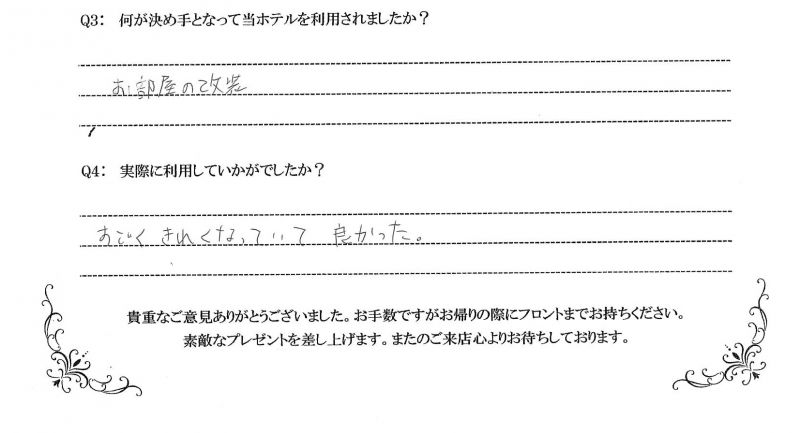 Q3: 何が決め手となって当ホテルを利用されましたか？
お部屋の改装
Q4: 実際に利用していかがでしたか？
すごく きれくなっていて 良かった。
貴重なご意見ありがとうございました。お手数ですがお帰りの際にフロントまでお持ちください。
素敵なプレゼントを差し上げます。またのご来店心よりお待ちしております。